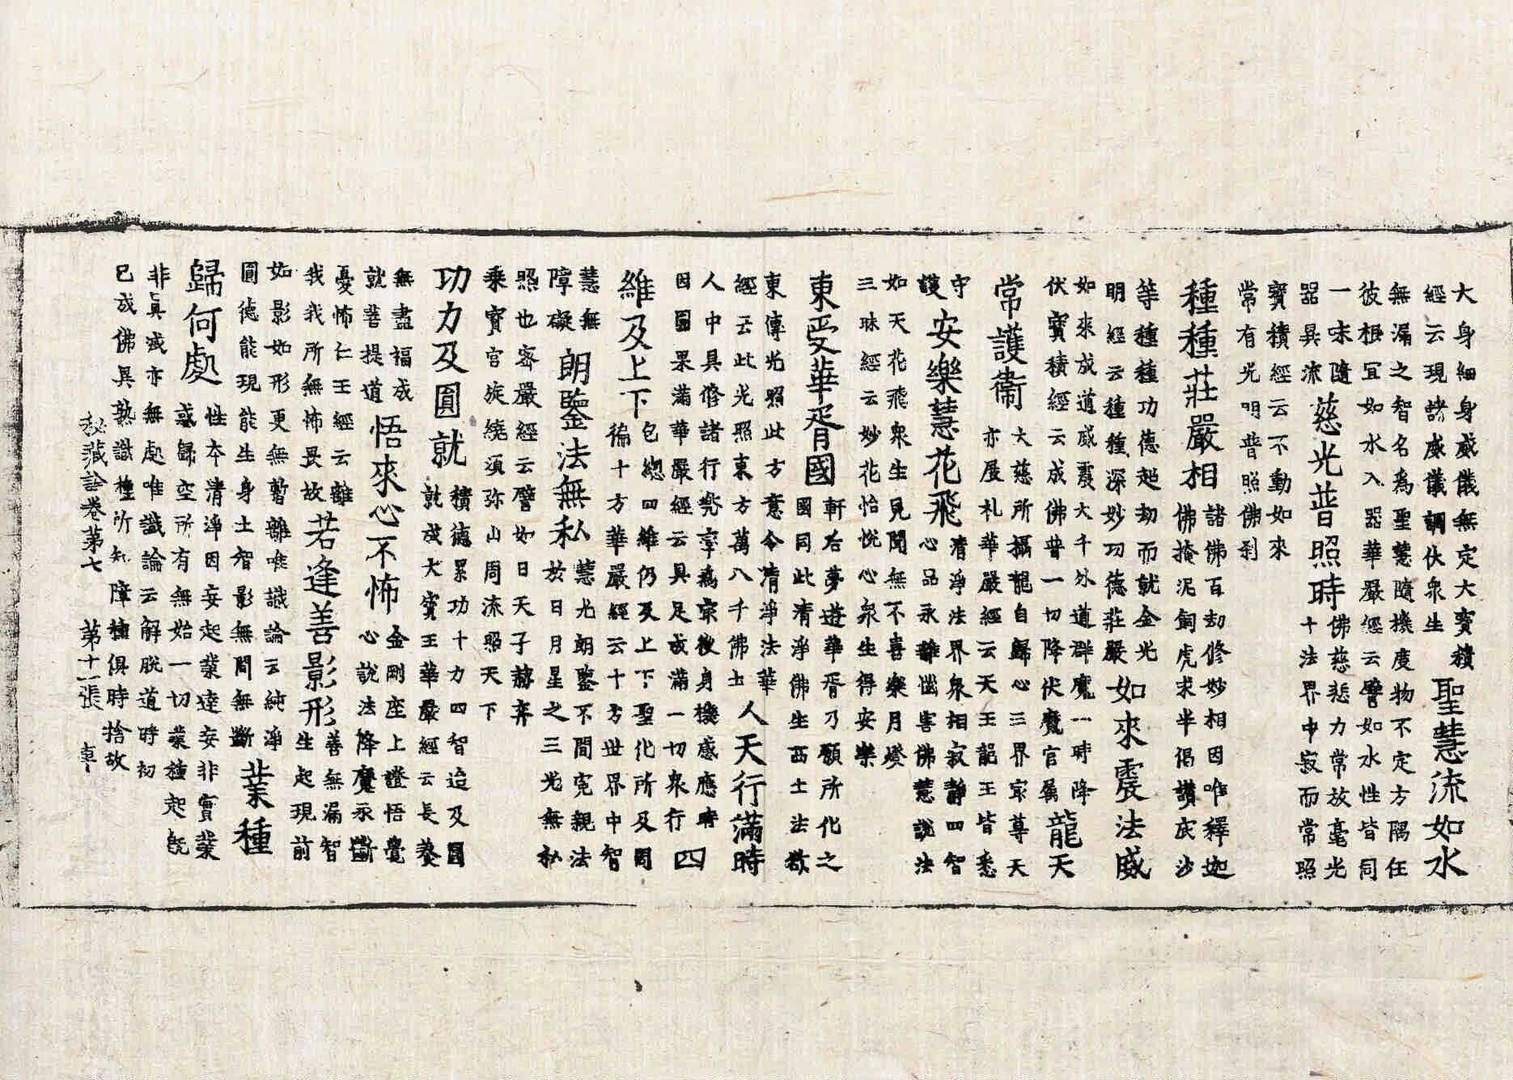 大身細身威儀無定大寶積
經云現諸威儀調伏衆生
聖慧流如水
無漏之智名為聖慧隨機度物不定方隅任
彼根冝如水入器華嚴經云譬如水性皆同
一味隨
器異流
慈光普照時
佛慈悲力常放毫光
十法界中寂而常照
寶積經云不動如來
常有光明普照佛刹
種種莊嚴相
諸佛百劫修妙相因唯釋迦
佛掩泥飼虎求半偈讃底沙
等種種功德超劫而就金光
明經云種種深妙功德莊嚴
如來震法威
如來成道威震大千外道群魔一時降
伏寶積經云成佛普一切降伏魔官属
龍天
常護衛
大慈所攝龍自歸心三界宗尊天
亦展札華嚴經云天王龍王皆悉
守
護
安樂慧花飛
清淨法界衆相寂靜四智
心品永離惱害佛慧說法
如天花飛衆生見聞無不喜樂月燈
三昧經云妙花怡悅心衆生得安樂
東受華胥國
軒后夢遊華胥乃願所化之
國同此清淨佛生西土法欲
東傳光照此方意令清淨法華
經云此光照東方萬八千佛土
人天行滿時
人中具修諸行為宗後身機感應時
因圓果滿華嚴經云具足成滿一切衆行
四
維及上下
包總四維仍及上下聖化所及周
徧十方華嚴經云十方世界中智
慧無
障礙
朗鑒法無私
慧光朗鑒不間寃親法
於日月星之三光無私
照也密嚴經云譬如日天子赫奕
乘寶宮旋繞須弥山周流照天下
功力及圓就
積德累功十力四智迨及圓
就成大寶王華嚴經云長養
無盡福成
就菩提道
悟來心不怖
金剛座上證悟覺
心說法降魔永斷
憂怖仁王經云離
我我所無怖畏故
若逢善影形
善無漏智
生起現前
如影如形更無暫離唯識論云純淨
圓德能現能生身土智影無間無斷
業種
歸何處
性本清淨因妄起業達妄非實業
惑歸空所有無始一切業種起旣
非眞滅亦無處唯識論云解脫道時初
已成佛異熟識種所知障種俱時捨故
秘藏詮卷第七 第十一張